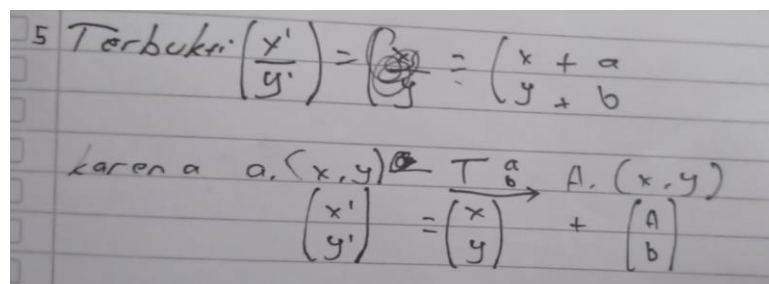 5 Terbukti (x' y') = = (x + a y + b
karena a. (x, y) T a b → A. (x, y)
(x' y') = (x y) + (A b)